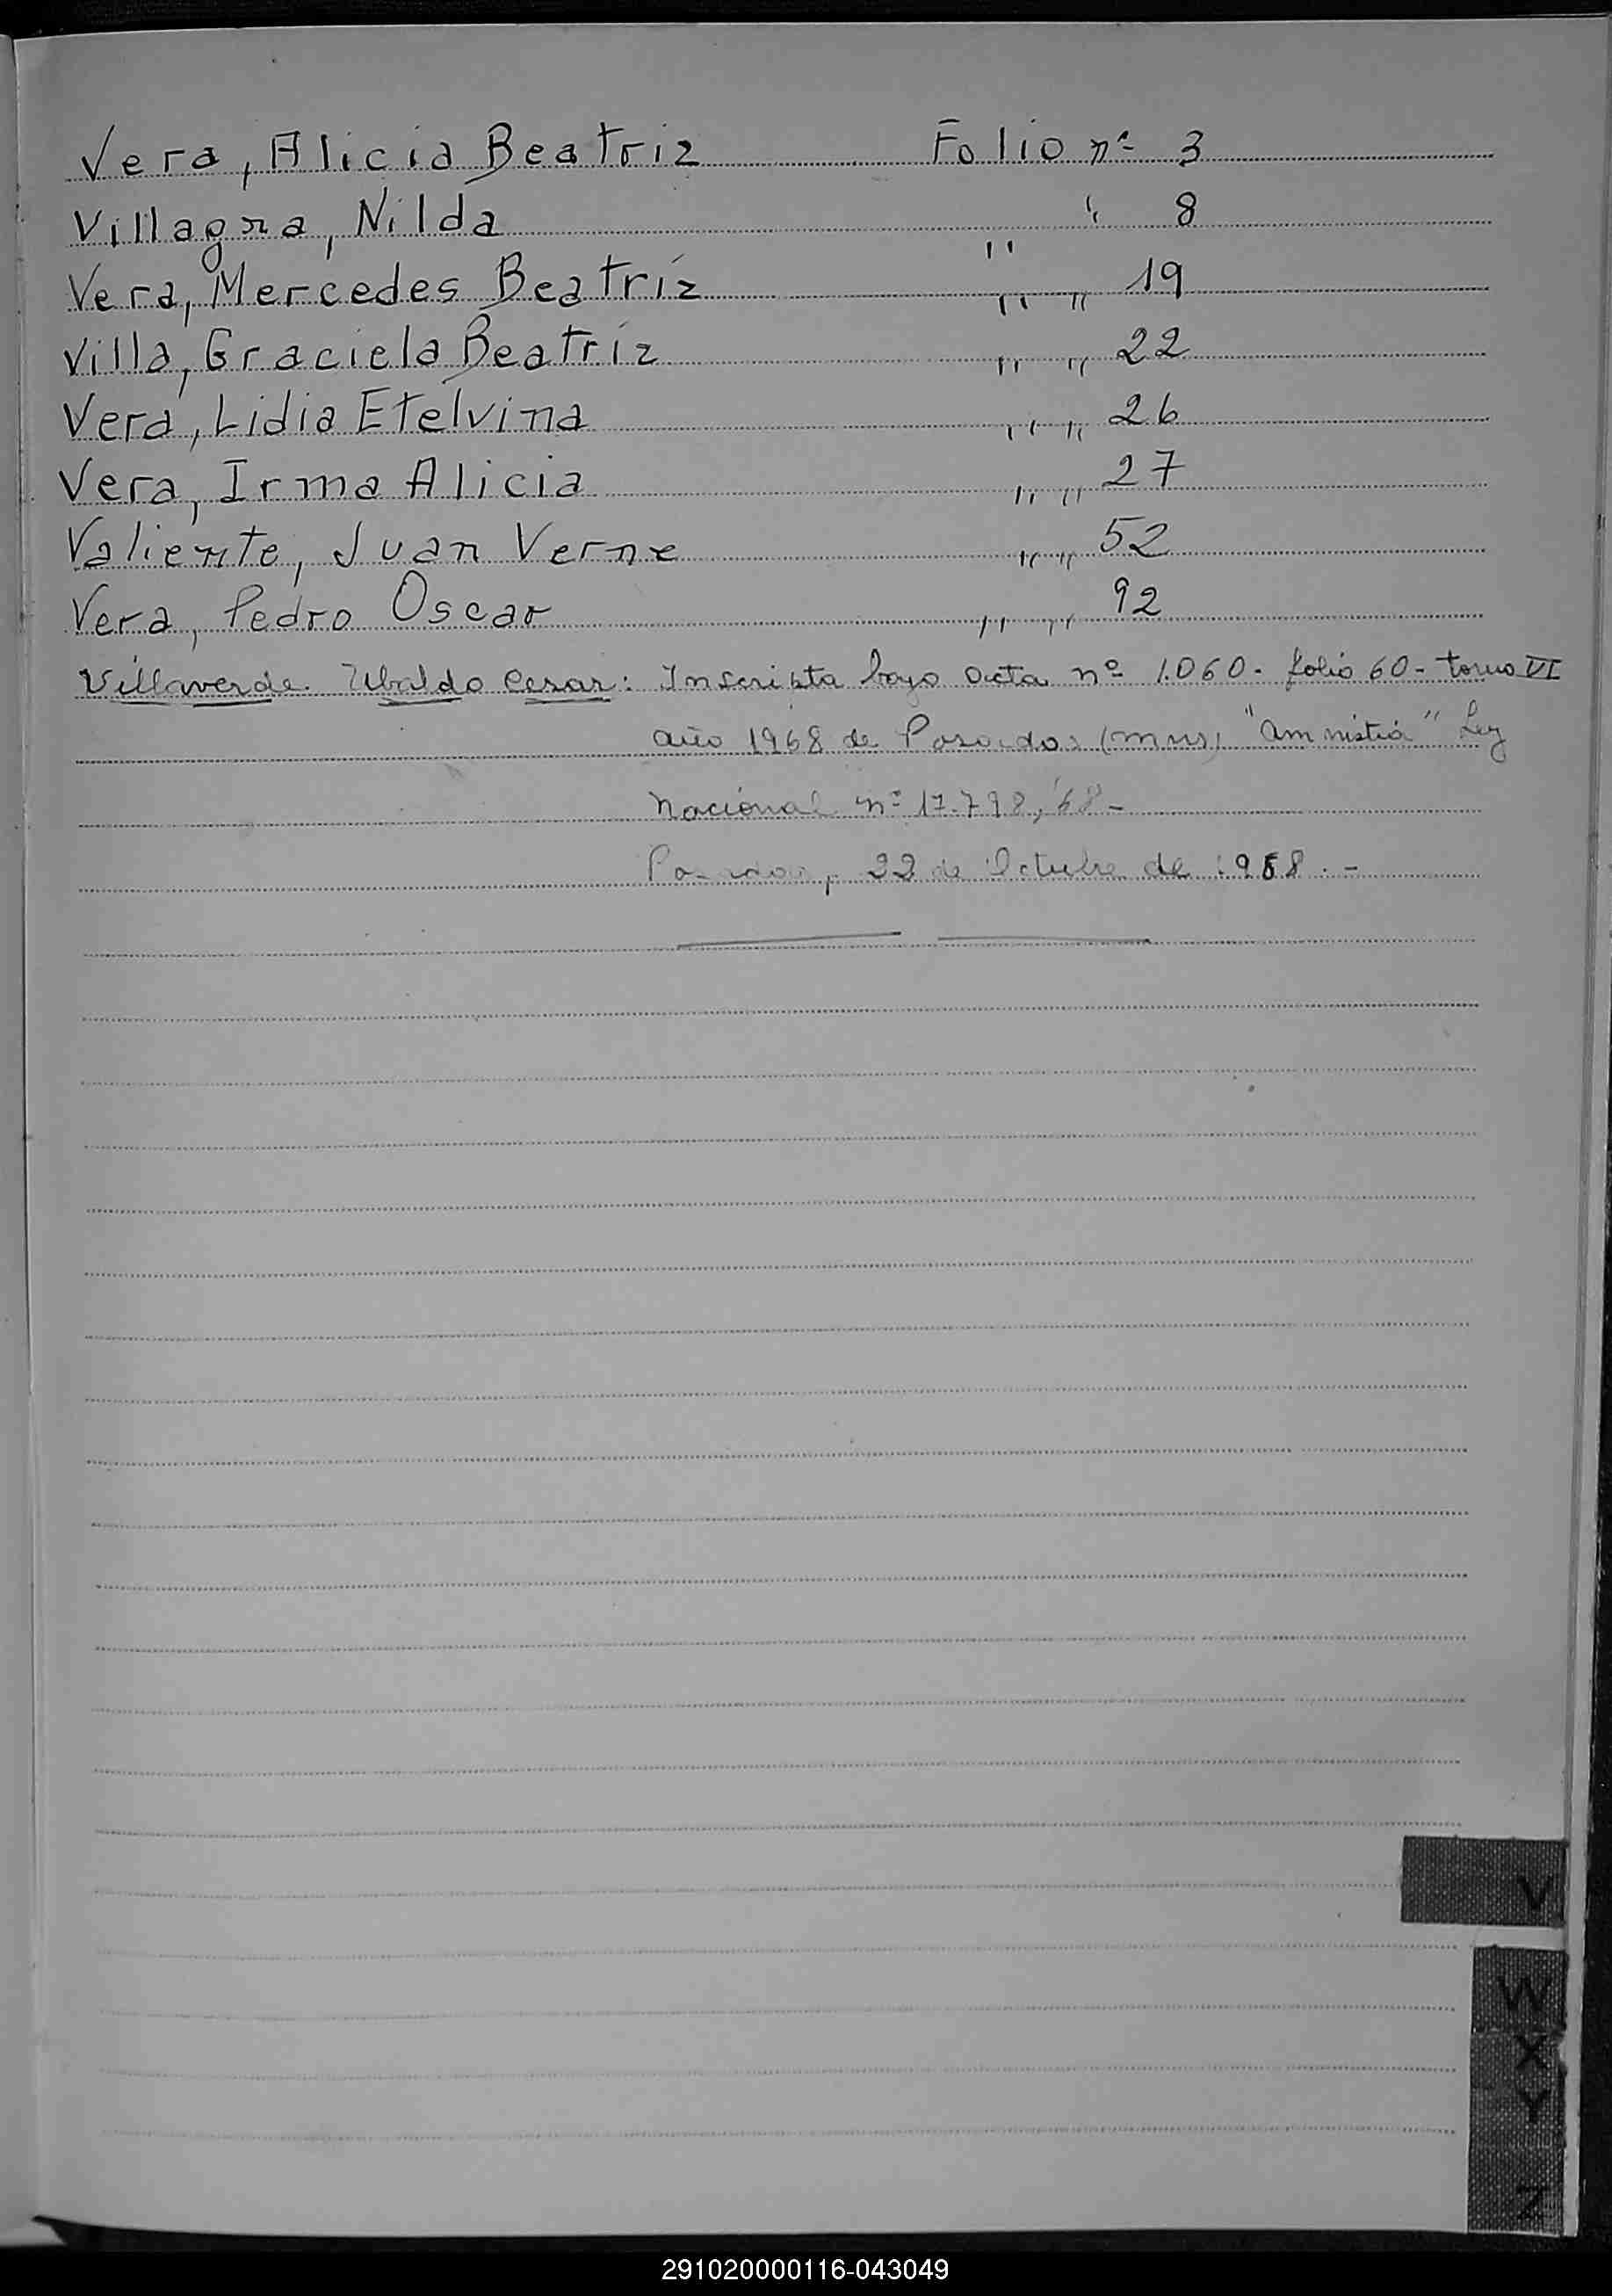 Vera, Alicia Beatriz Folio nº 3
Villagra, Nilda " " 8
Vera, Mercedes Beatríz " " 19
Villa, Graciela Beatríz " " 22
Vera, Lidia Etelvina " " 26
Vera, Irma Alicia " " 27
Valiente, Juan Verne " " 52
Vera, Pedro Oscar " " 92
Villaverde. Ubaldo Cesar: Inscripta bajo acta nº 1.060- folio 60- tomo VI
año 1968 de Posadas (mns) "amnistia" Ley
Nacional nº 17.798/68-
Posadas, 22 de Octubre de 1968.-
V
W
X
Y
Z
291020000116-043049